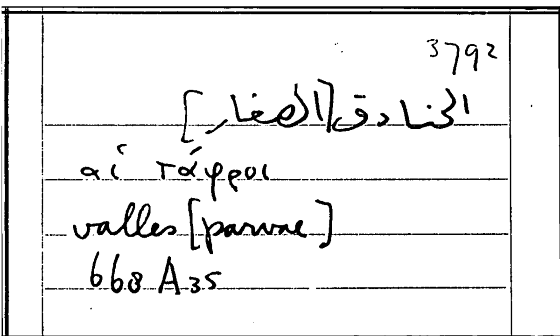 3792
الخنادق [الصغار]
αἱ τάφροι
valles [parvae]
668 A 35